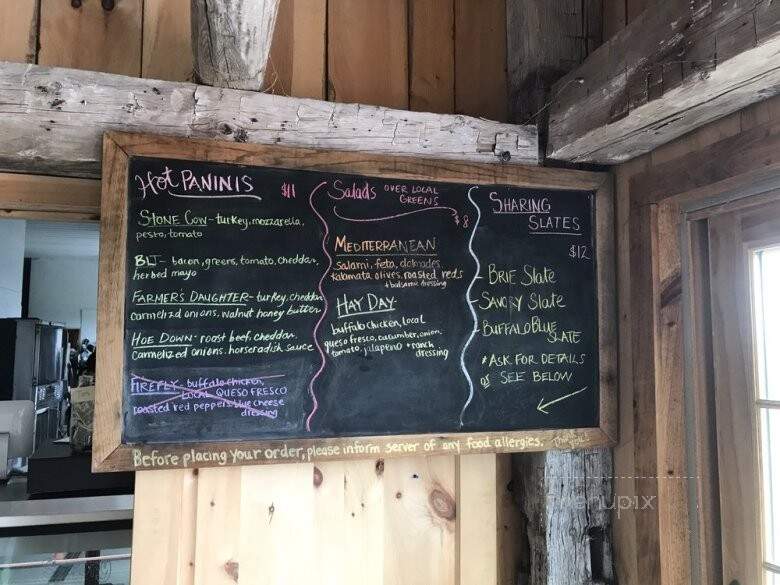 Hot PANINIS $11
STONE COW- turkey, mozzarella,
pesto, tomato
BLT- bacon, greens, tomato, cheddar,
herbed mayo
FARMER'S DAUGHTER- turkey, cheddar
carmelized onions, walnut honey butter
HOE DOWN- roast beef, cheddar,
carmelized onions, horseradish sauce
FIREFLY- buffalo chicken,
LOCAL QUESO FRESCO
roasted red peppers blue cheese
dressing
Salads OVER LOCAL
GREENS
$8
MEDITERRANEAN
salami, feta, dolmades,
kalamata olives, roasted reds
+ balsamic dressing
HAY DAY
buffalo chicken, local
queso fresco, cucumber, onion,
tomato, jalapeno + ranch
dressing
SHARING
SLATES
$12
- BRIE Slate
- SAVORY Slate
- BUFFALO BLUE
SLATE
* ASK FOR DETAILS
or SEE BELOW
Before placing your order, please inform server of any food allergies. Thank
you!
menupix